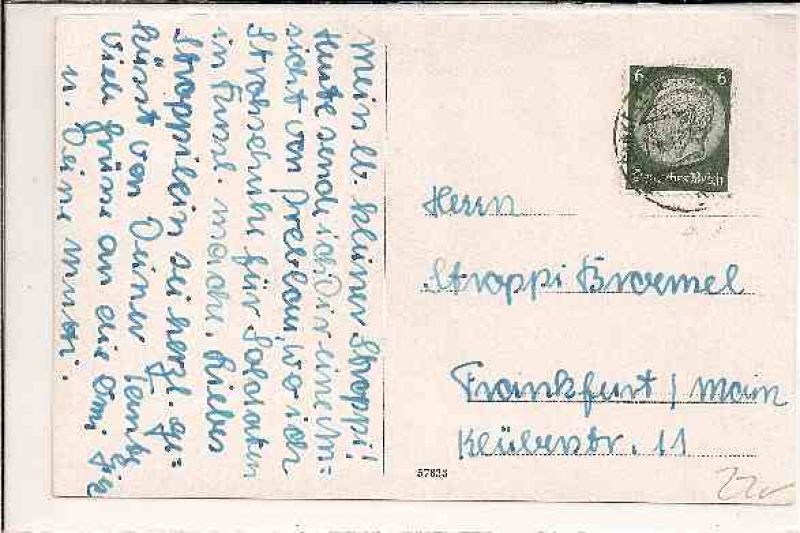 Mein lb. kleiner Stroppi!
Heute sende ich Dir eine An=
sicht von Breslau, wo ich
Strohschuhe für Soldaten
in Fussl. mache. Liebes
Stroppilein sei herzl. ge=
küsst von Deiner Tante
viele Grüsse an die Omi
u. Deine Mutti.
6 6
Deutsches Reich
Herrn
Stroppi Broemel
Frankfurt / Main
Klüberstr. 11
57633